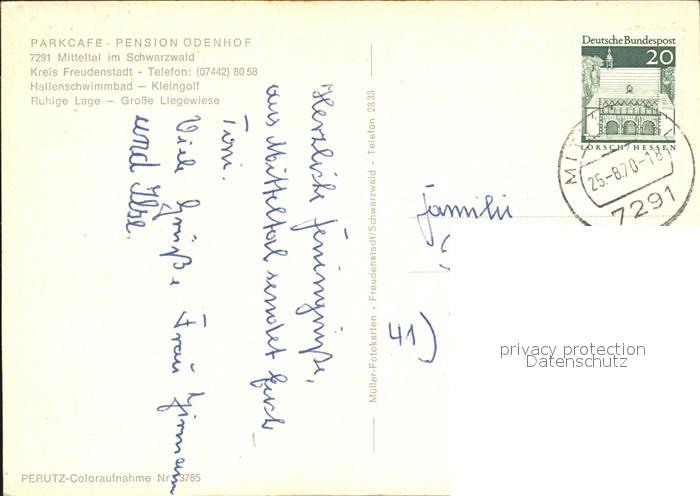 PARKCAFE · PENSION ÖDENHOF
7291 Mitteltal im Schwarzwald
Kreis Freudenstadt - Telefon: (07442) 80 58
Hallenschwimmbad — Kleingolf
Ruhige Lage — Große Liegewiese
Herzliche Feriengrüße,
aus Mitteltal sendet Euch
Toni.
Viele Grüße Frau
und Ilse.
PERUTZ-Coloraufnahme Nr. 3785
Müller-Fotokarten - Freudenstadt/Schwarzwald - Telefon 2833
Deutsche Bundespost
20
LORSCH HESSEN
25.-8.70-18
7291
Familie
41)
privacy protection
Datenschutz